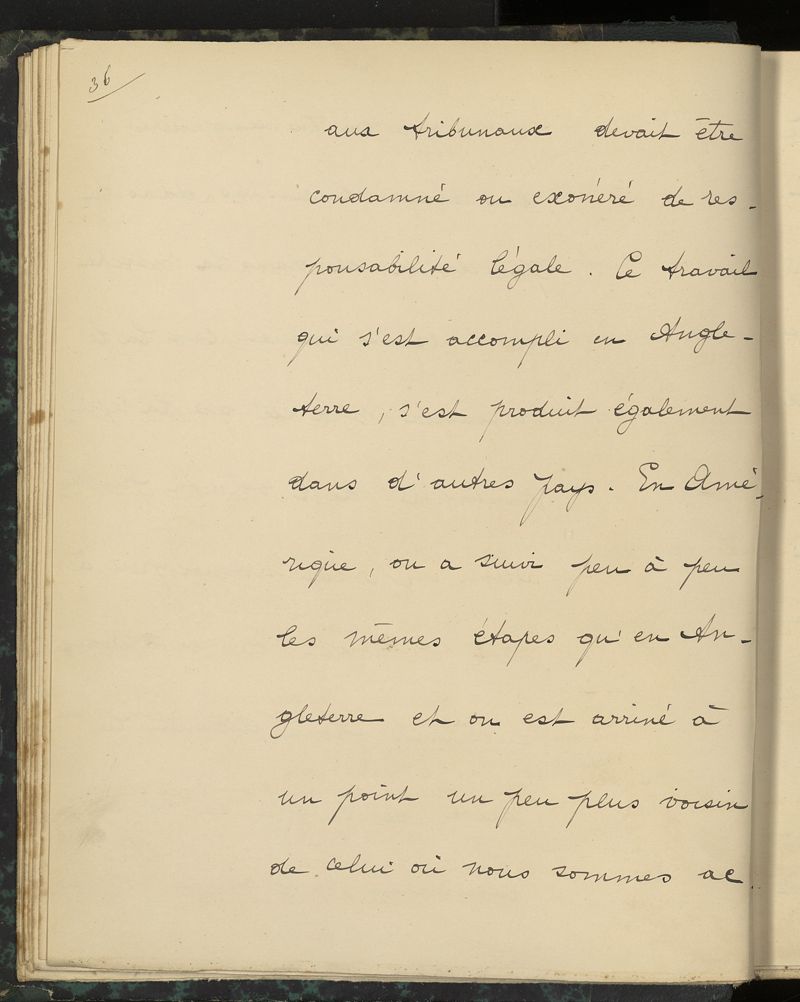 36
aux tribunaux devait être
condamné ou exonéré de res-
ponsabilité légale. Ce travail
qui s'est accompli en Angle-
terre, s'est produit également
dans d'autres pays. En Amé-
rique, on a suivi peu à peu
les mêmes étapes qu'en An-
gleterre et on est arrivé à
un point un peu plus voisin
de celui où nous sommes ac